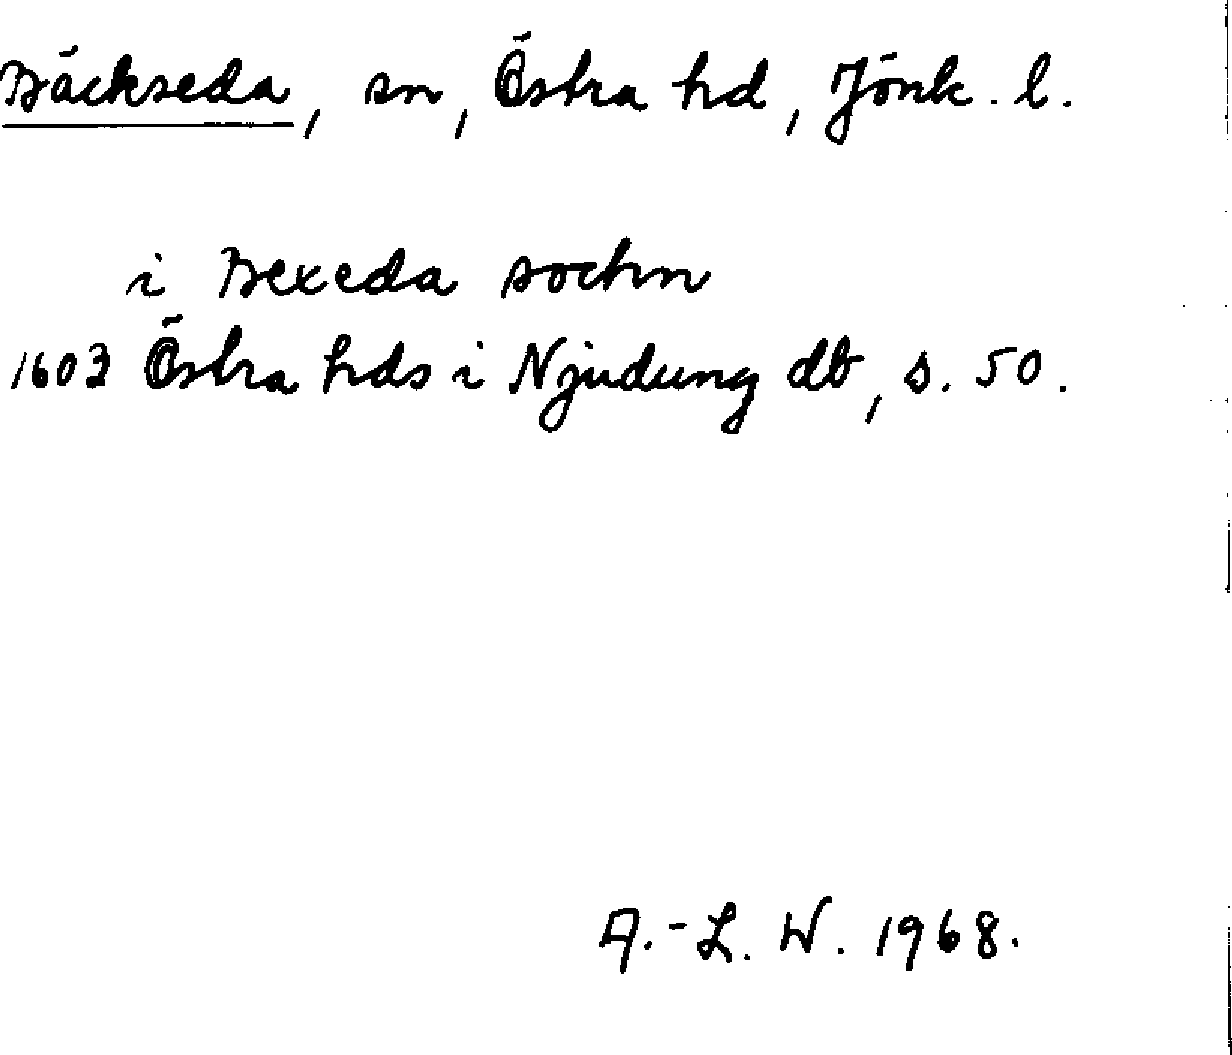 Bäckseda, sn, Östra hd, Jönk. l.
i Bexeda sochn
1603 Östra hds i Njudung db, s. 50.
A.-L. W. 1968.